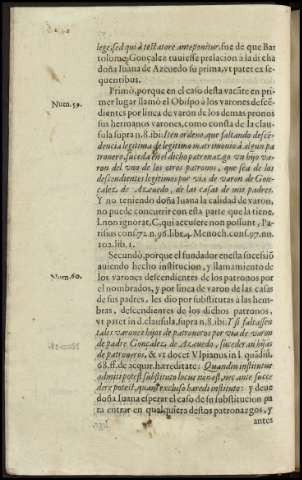 lege, sed qui à testatore anteponitur, fue de que Bar
tolome Gonçalez tuuiesse prelacion à la dicha
doña Iuana de Azeuedo su prima, vt patet ex se
quentibus.
Num. 59.
Primò, porque en el caso desta vacāte en pri
mer lugar llamò el Obispo à los varones descē
dientes por linea de varon de los demas prono
sus hermanos varones, como consta de la clau
sula supra n. 8. ibi: Iten ordeno, que faltando descē
dencia legitima de legitimo matrimonio à algun pa
tronero, suceda en el dicho patronazgo vn hijo va
ron del vno de los otros patronos, que sea de los
descendientes legitimos por via de varon de Gon
çalez, de Azauedo, de las casas de mis padres.
Y no teniendo doña Iuana la calidad de varon,
no puede concurrir con esta parte que la tiene.
l. non ignorat, C. qui accusare non possunt, Pa
risius cons. 72. n. 96. lib. 4. Menoch. cons. 97. nu.
102. lib. 1.
Num. 60.
Secundò, porque el fundador en esta sucesiō
auiendo hecho institucion, y llamamiento de
los varones descendientes de los patronos por
el nombrados, y por linea de varon de las casas
de sus padres, les dio por substitutas à las hem-
bras, descendientes de los dichos patronos,
vt patet in d. clausula, supra n. 8. ibi: Y si faltassen
tales varones hijos de patroneros por via de varon
de padre Gonçalez, de Azauedo, sucedan hijas
de patroneros, & vt docet Vlpianus in l. quādiu
68. ff. de acquir. hæreditate: Quandiu institutus
admitti potest, substituto locus non est, nec ante succe
dere potest, quam excluso hæredi instituto: y deue
doña Iuana esperar el caso de su substitucion pa
ra entrar en qualquiera destos patronazgos, y
antes